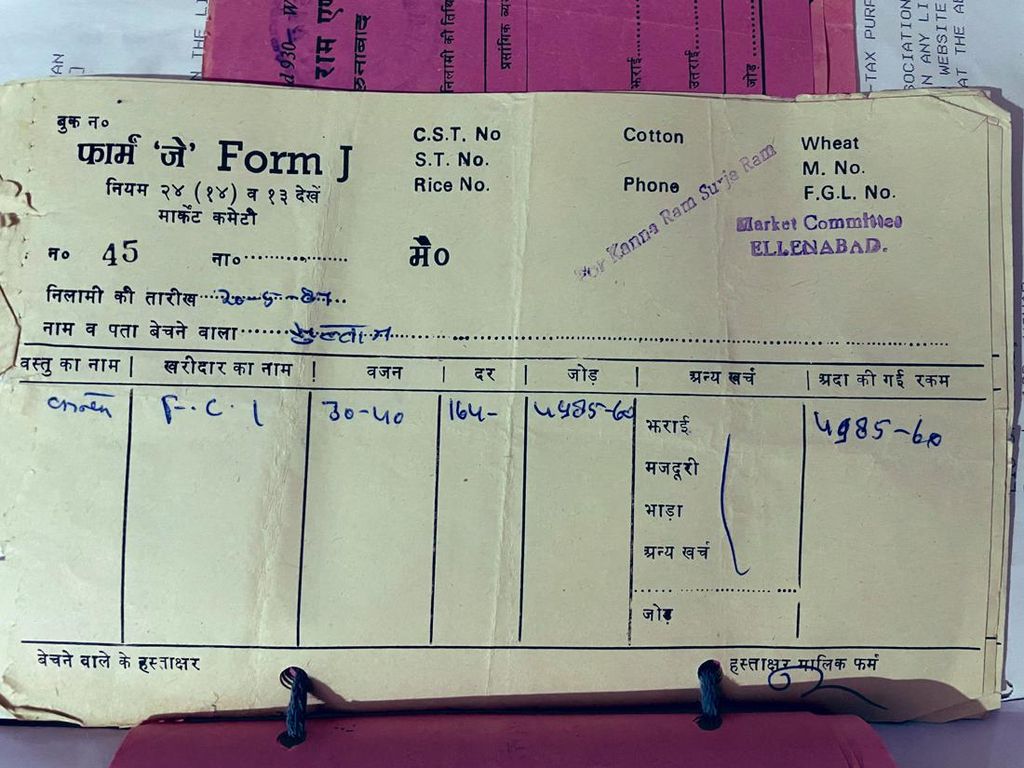 बुक न०
फार्म 'जे' Form J
नियम २४ (१४) व १३ देखें
मार्केट कमेटी
C.S.T. No
S.T. No.
Rice No.
Cotton
Phone
Wheat
M. No.
F.G.L. No.
For Kanna Ram Surja Ram
Market Committee
ELLENABAD.
न० 45 ना०.................. मै०
निलामी की तारीख
नाम व पता बेचने वाला
वस्तु का नाम | खरीदार का नाम | वजन | दर | जोड़ | ग्रन्य खर्च | ग्रदा की गई रकम
F.C.I 30-40 164- 4985-60 4985-60
भराई
मजदूरी
भाड़ा
ग्रन्य खर्च
जोड़
बेचने वाले के हस्ताक्षर हस्ताक्षर मालिक फर्म
निलामी की तिथि
भराई
उतराई
जोड़